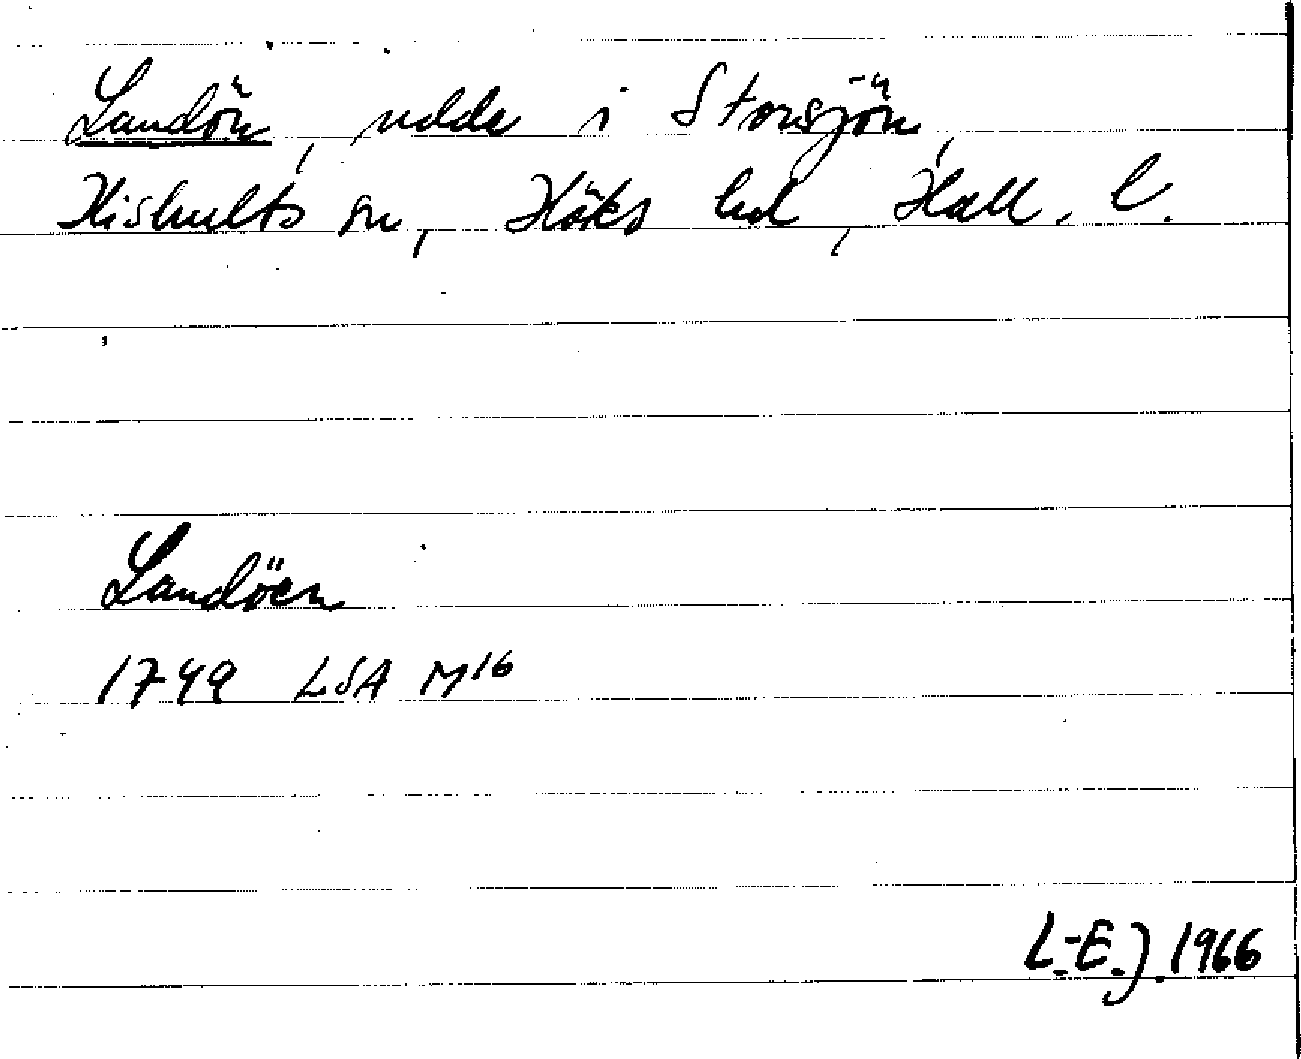 Landön, udde i Storsjön,
Hishults sn, Höks hd, Hall. l.
Landöen
1749 LSA M16
L.-E.J. 1966